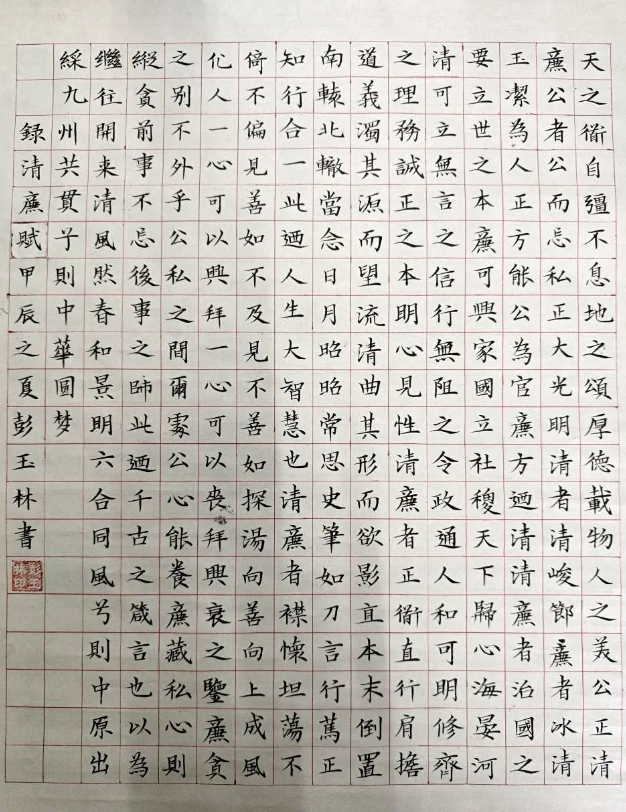 天之衜自彊不息地之頌厚德載物人之美公正清
廉公者公而忌私正大光明清者清峻節廉者冰清
玉潔為人正方能公為官廉方迺清清廉者治國之
要立世之本廉可興家國立社稷天下歸心海晏河
清可立無言之信行無阻之令政通人和可明修齊
之理務誠正之本明心見性清廉者正衜直行肩擔
道義濁其源而望流清曲其形而欲影直本末倒置
南轅北轍當念日月昭昭常思史筆如刀言行篤正
知行合一此迺人生大智慧也清廉者襟懷坦蕩不
倚不偏見善如不及見不善如探湯向善向上成風
化人一心可以興拜一心可以喪拜興衰之鑒廉貪
之别不外乎公私之間爾處公心能養廉藏私心則
縱貪前事不忘後事之師此迺千古之箴言也以為
繼往開来清風然春和景明六合同風兮則中原出
綵九州共貫予則中華圓梦
録清廉賦甲辰之夏彭玉林書
彭玉林印